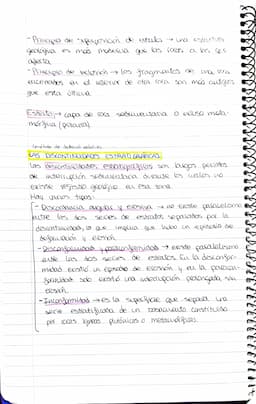 - Principio de superposición de estratos → una estructura
geológica es más moderna que las rocas a las que
afecta.
- Principio de inclusión → los fragmentos de una roca
encerrados en el interior de otra roca son más antiguos
que esta última.
Estrato → capa de roca sedimentaria o incluso meta-
mórfica (pizarra).
LAS DISCONTINUIDADES ESTRATIGRÁFICAS
Las discontinuidades estratigráficas son largos periodos
de interrupción sedimentaria durante los cuales no
existe registro geológico en esa zona.
Hay varios tipos:
- Discordancia angular y erosiva → no existe paralelismo
entre las dos series de estratos separados por la
discontinuidad, lo que implica que hubo un episodio de
deformación y erosión.
- Disconformidad y paraconformidad → existe paralelismo
entre las dos series de estratos. En la disconfor-
midad existió un episodio de erosión y en la paracon-
formidad solo existió una interrupción prolongada sin
erosión.
- Inconformidad → es la superficie que separa una
serie estratificada de un basamento constituido
por rocas ígneas plutónicas o metamórficas.